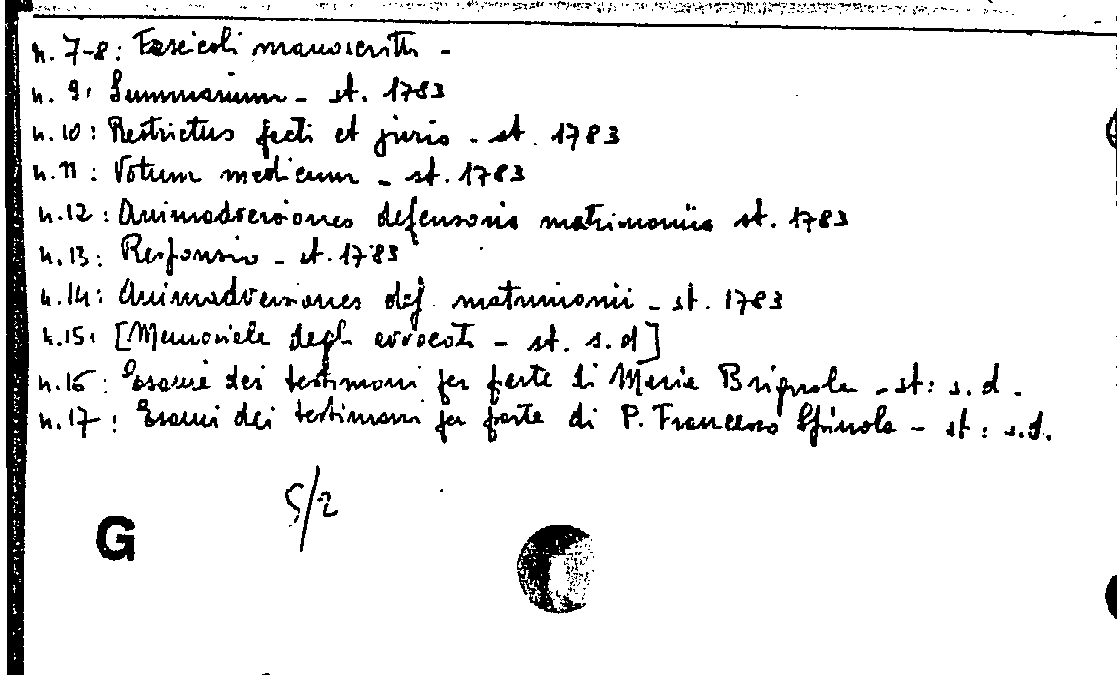 n. 7-8: Fascicoli manoscritti -
n. 9: Summarium - st. 1783
n. 10: Restrictus facti et juris - st. 1783
n. 11: Votum medicum - st. 1783
n. 12: Animadversiones defensoris matrimonii st. 1783
n. 13: Responsio - st. 1783
n. 14: Animadversiones def. matrimonii - st. 1783
n. 15: [Memoriale degli avvocati - st. s.d]
n. 16: Esami dei testimoni per parte di Maria Brignole - st: s.d.
n. 17: Esami dei testimoni per parte di P. Francesco Spinola - st: s.d.
5/2
G